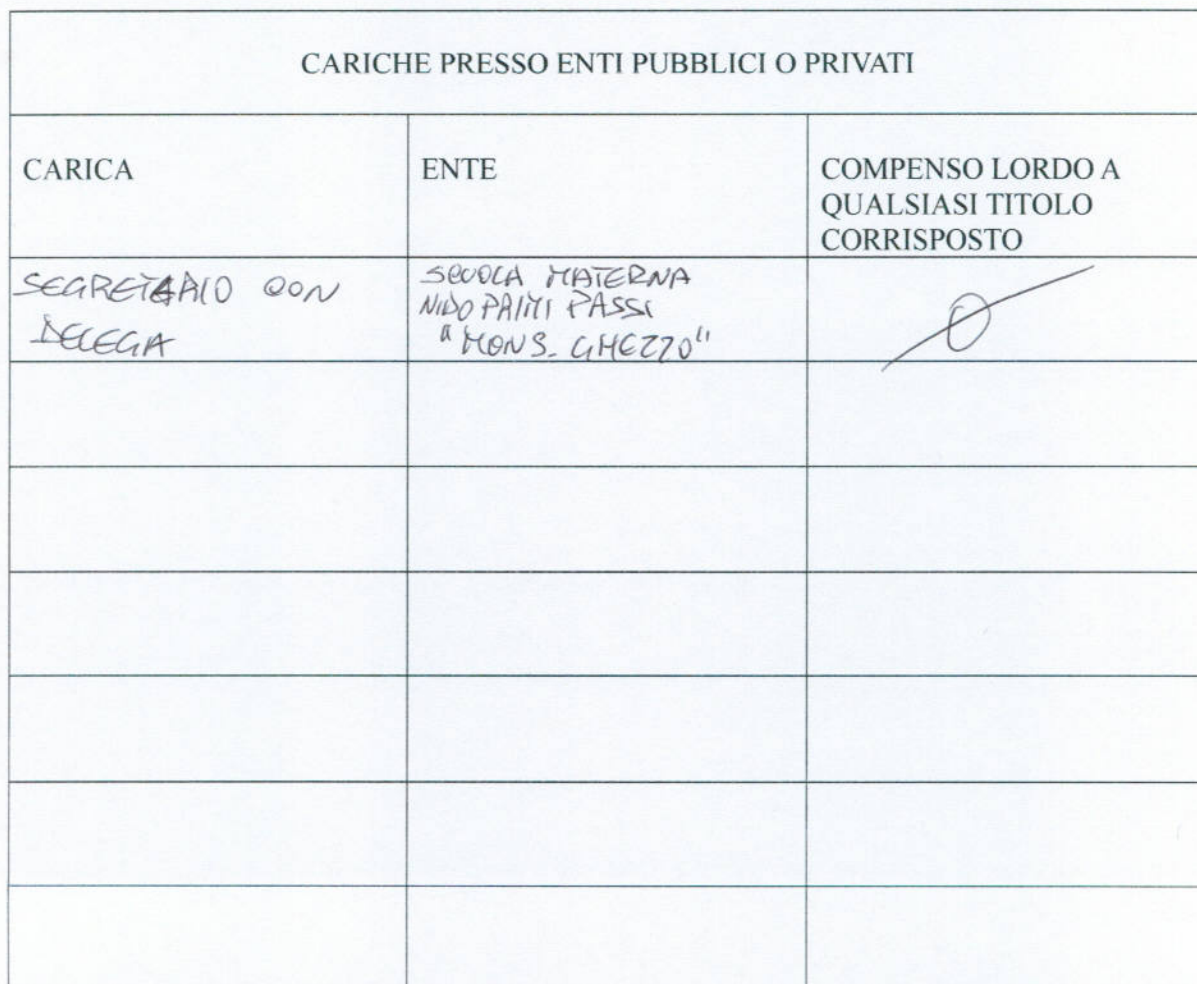 CARICHE PRESSO ENTI PUBBLICI O PRIVATI
CARICA
ENTE
COMPENSO LORDO A
QUALSIASI TITOLO
CORRISPOSTO
SEGRETARIO CON
DELEGA
SCUOLA MATERNA
NIDO PRIMI PASSI
"MONS. GHEZZO"
0